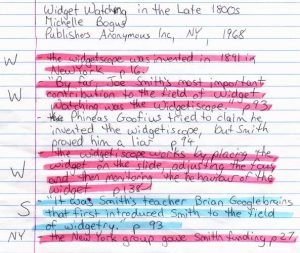 Widget Watching in the Late 1800s
Michelle Bogus
Publishers Anonymous Inc, NY, 1968
W - the widgetscope was invented in 1891 in
New York p 16.
W - "By far, Joe Smith's most important
contribution to the field of Widget
Watching was the Widgetiscope." p 93
- Phineas Goofius tried to claim he
invented the widgetiscope, but Smith
proved him a liar p 94.
- the widgetiscope works by placing the
widget on the slide, adjusting the
W then monitoring the behaviour of the
widget p 138
S - "It was Smith's teacher Brian Googlebrains
that first introduced Smith to the field
of widgetry." p 93
NY the New York group gave Smith funding p 27,